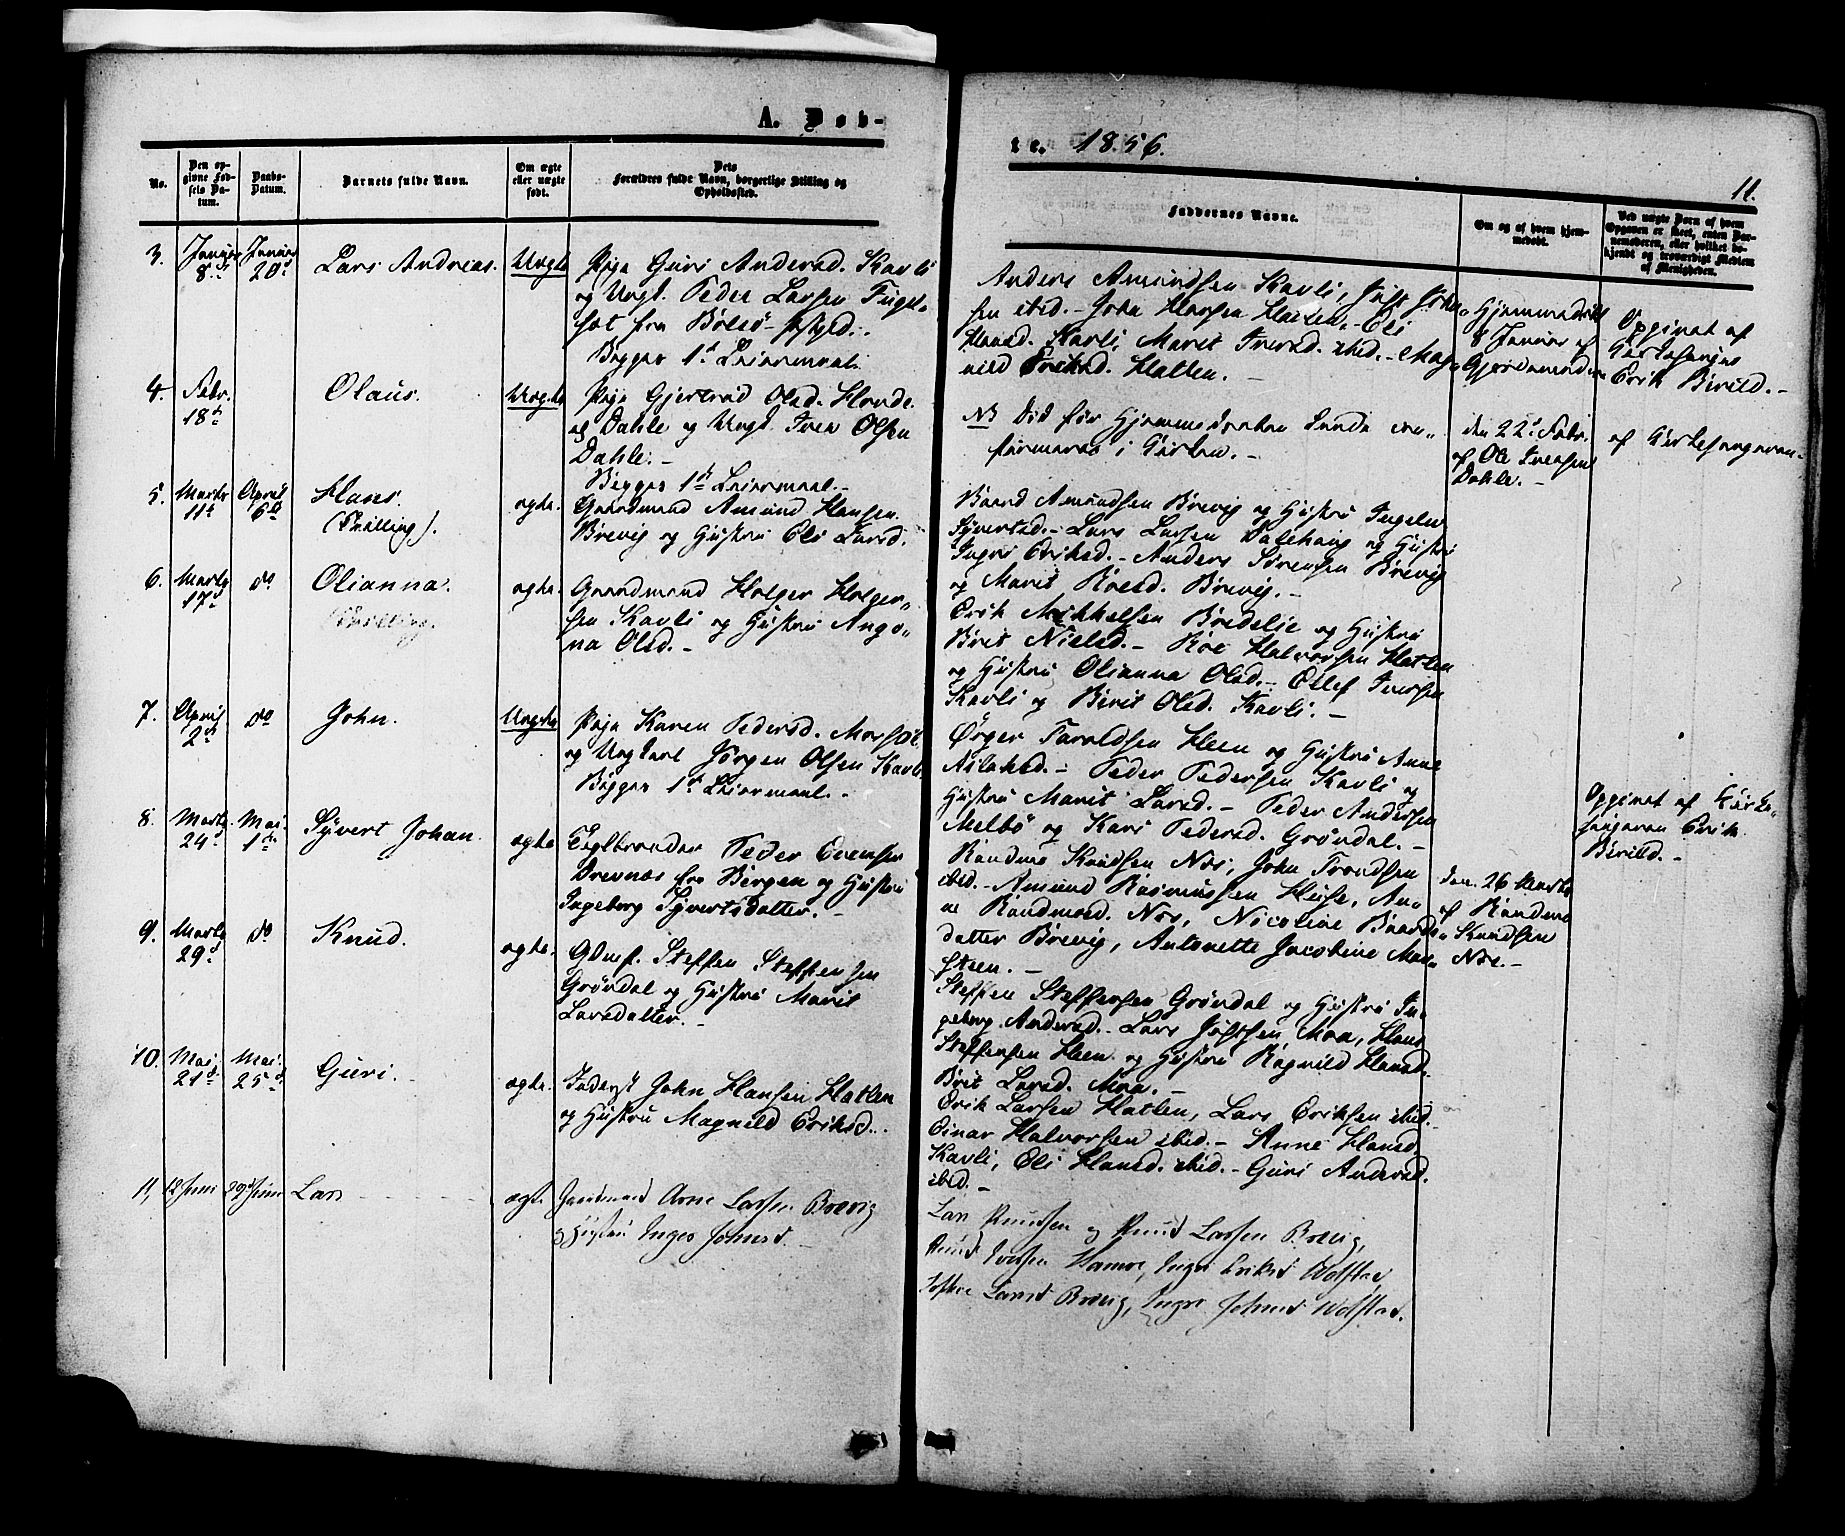 A. Døb-
te. 1856.
11.
No.
Den op-
givne Fød-
sels Da-
tum.
Daabs-
Datum.
Barnets fulde Navn.
Om ægte
eller uægte
født.
Dets
Forældres fulde Navn, borgerlige Stilling og
Opholdssted.
Faddernes Navne.
Om og af hvem hjem-
medøbt.
Ved uægte Børn af hvem
Opgaven er skeet, enten Bar-
nemoderen, eller hvilket be-
kjendt og troværdigt Medlem
af Menigheden.
3. Januar 8de Januar 20de Lars Andreas. Uægte
Pige Guri Andersd. Kavli
og Ungk. Peder Larsen Fugel-
sæt fra Bolsø
Begges 1ste Leiermaal.
Anders Amundsen Kavli,
sen ibid. - John Hansen Hatlen. - Eli
Hansd. Kavli, Marit Iversd. ibid. - Mag-
nild Eriksd. Hatlen. -
Hjemmedøbt
8 Januar af
Gjordemoderen
Opgivet af
Kirkesanger
Erik Birild. -
4. Febr. 18de Olaus. Uægte
Pige Gjertrud Olsd.
Dahle og Ungk. Iver Olsen
Dahle. -
Begges 1ste Leiermaal. -
NB Død før Hjemmedaaben kunde con-
firmeres i Kirken. -
den 22de Febr.
af Ole Iversen
Dahle. -
af Kirkesangeren
5. Marts 11te April 6te Hans.
(Trilling).
ægte.
Gaardmand Amund Hansen
Brevig og Hustru Eli Larsd.
Baard Amundsen Brevig og Hustru Ingeb.
Syvertsd. - Lars Larsen Dalehaug og Hustru
Ingri Eriksd. - Anders Sørensen Brevig
og Marit Roesd. Brevig. -
6. Marts 17de do Olianna.
ægte.
Gaardmand Holger Holger-
sen Kavli og Hustru
na Olsd. -
Erik Mikkelsen Bredelie og Hustru
Brit Nielsd. - Roe Halvorsen Hatlen
og Hustru Olianna Olsd. - Ellef Iversen
Kavli og Berit Olsd. Kavli. -
7. April 2den do John. Uægte
Pige Karen Pedersd.
og Ungkarl Jørgen Olsen Kavli
Begges 1ste Leiermaal. -
Ørger Taraldsen Heen og Hustru Anne
Aslaksd. - Peder Pedersen Kavli og
Hustru Marit Larsd. - Peder Andersen
Melbø og Kari Pedersd. Grøndal. -
Opgivet af Kirke-
sangeren Erik
Birild. -
8. Marts 24de Mai 1ste Syvert Johan.
ægte
Teglbrænder Peder Evensen
Drevnæs fra Bergen og Hustru
Ingeborg Syvertsdatter. -
Knudsen Nos, John Trondsen
ibid. - Amund Rasmussen Huse, An-
ne Nos, Nicoline Baards-
datter Brevig, Antonette Jacobine Mor-
steen. -
den 26 Marts
af
Knudsen
Nos. -
9. Marts 29de do Knud.
ægte.
Gdmf. Steffen Steffensen
Grøndal og Hustru Marit
Larsdatter. -
Steffen Steffensen Grøndal og Hustru In-
geborg Andersd. - Lars Moa, Hans
Steffensen Heen og Hustru Ragnild Hansd.
Brit Larsd. Moa. -
10. Mai 21de Mai 25de Guri.
ægte.
Inderst John Hansen Hatlen
og Hustru Magnild Eriksd.
Erik Larsen Hatlen, Lars Eriksen ibid. -
Einar Halvorsen ibid. - Anne Hansd.
Kavli, Eli Hansd. ibid. - Guri Andersd.
ibid. -
11, 12 Juni 29de Juni Lars
ægt.
Gaardmand Arne Larsen Brevig
og Hustru Inger Johnsd.
Lars Knudsen og Knud Larsen Brevig,
Knud Iversen Hamre, Ingri Eriksd Wolstad,
Larsd Brevig, Ingri Johnsd Wolstad.